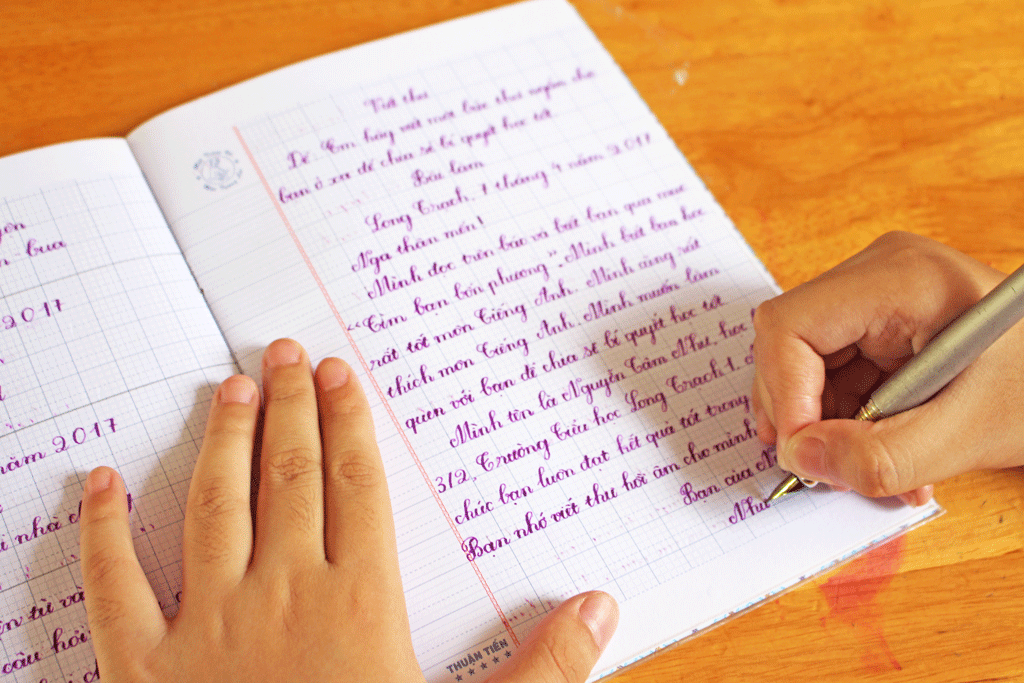 yện
n-bua
2017
năm 2017
i nhà
ôn từ và
câu hỏi
Viết thư
Đề: Em hãy viết một bức thư ngắn cho
bạn ở xa để chia sẻ bí quyết học tốt.
Bài làm
Long Trạch, 1 tháng 4 năm 2017
Nga thân mến!
Mình đọc trên báo và biết bạn qua mục
"Tìm bạn bốn phương". Mình biết bạn học
rất tốt môn Tiếng Anh. Mình cũng rất
thích môn Tiếng Anh. Mình muốn làm
quen với bạn để chia sẻ bí quyết học tốt
Mình tên là Nguyễn Tâm Như, học
3/2, Trường Tiểu học Long Trạch 1.
chúc bạn luôn đạt kết quả tốt trong
Bạn nhớ viết thư hồi âm cho mình
Bạn của
Như
THUẬN TIẾN